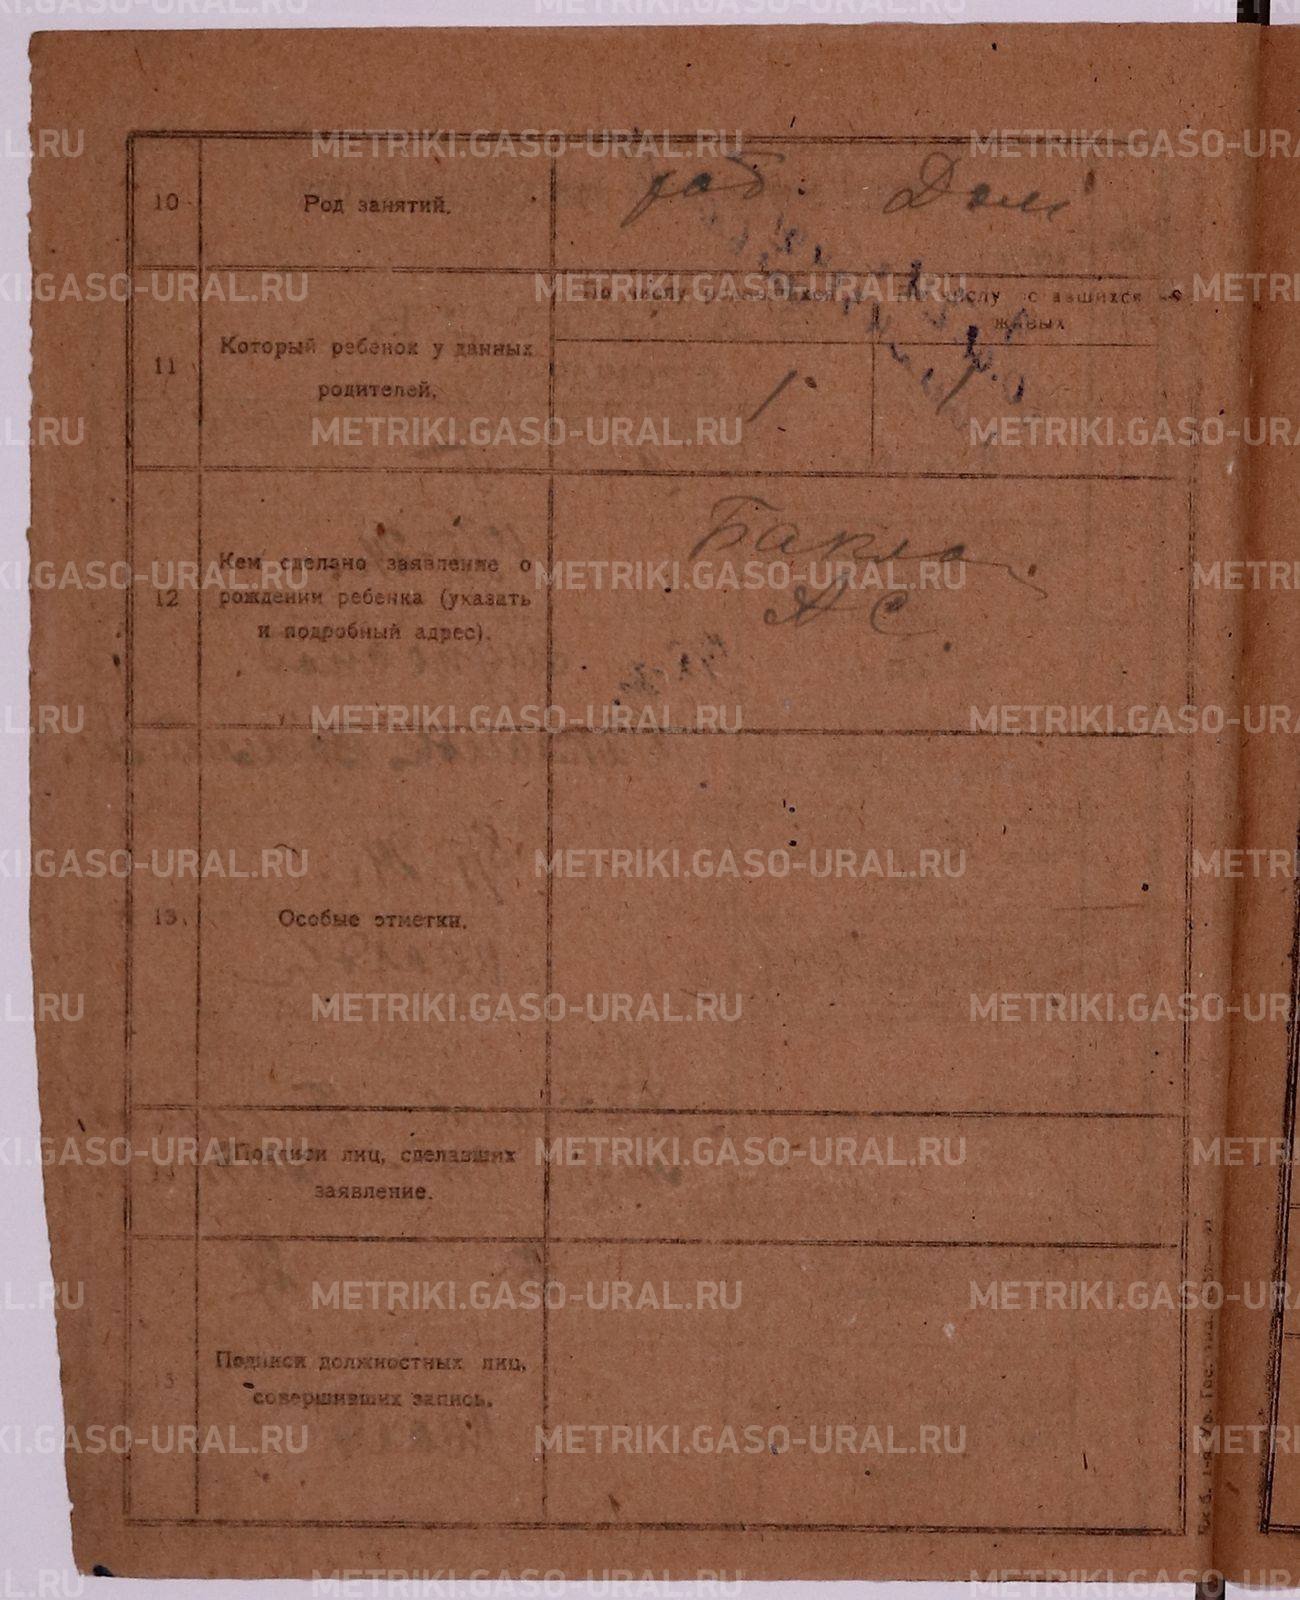 10
Род занятий.
раб. Дом
По числу родившихся
По числу оставшихся в живых
11
Который ребенок у данных
родителей.
1.
1
12
Кем сделано заявление о
рождении ребенка (указать
и подробный адрес).
Бакла
А С.
13.
Особые отметки.
Подписи лиц, сделавших
заявление.
Подписи должностных лиц,
совершивших запись.
METRIKI.GASO-URAL.RU